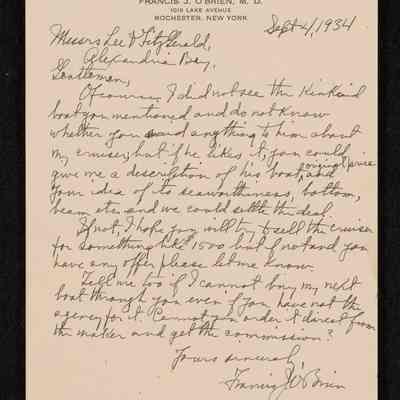 FRANCIS J. O'BRIEN, M. D.
1019 LAKE AVENUE
ROCHESTER, NEW YORK
Sept 4, 1934
Messrs Lee & Fitzgerald,
Alexandria Bay,
Gentlemen,
Of course I did not see the Kinkaid
boat you mentioned and do not know
whether you said anything to him about
my cruiser, but if he likes it, you could
give me a description of his boat, and original price
your idea of its seaworthiness, bottom,
beam etc. and we could settle the deal.
If not, I hope you will try to sell the cruiser
for something like 1500 but if not and you
have any offer please let me know.
Tell me too if I cannot buy my next
boat through you even if you have not the
agency for it. Cannot you order it direct from
the maker and get the commission?
Yours sincerely
Francis J. O'Brien